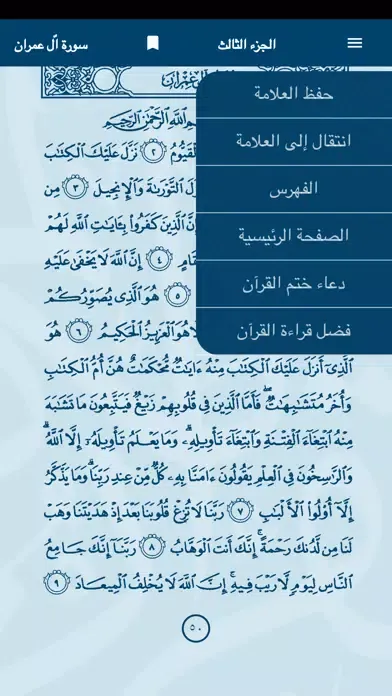 سورة آل عمران
الجزء الثالث
حفظ العلامة
انتقال إلى العلامة
الفهرس
الصفحة الرئيسية
دعاء ختم القرآن
فضل قراءة القرآن
ٱللَّهِ ٱلرَّحْمَٰنِ ٱلرَّحِيمِ
ٱلْقَيُّومُ ٢ نَزَّلَ عَلَيْكَ ٱلْكِتَٰبَ
ٱلتَّوْرَىٰةَ وَٱلْإِنجِيلَ ٣ مِن
ٱلَّذِينَ كَفَرُوا۟ بِـَٔايَٰتِ ٱللَّهِ لَهُمْ
٤ إِنَّ ٱللَّهَ لَا يَخْفَىٰ عَلَيْهِ
٥ هُوَ ٱلَّذِى يُصَوِّرُكُمْ
هُوَ ٱلْعَزِيزُ ٱلْحَكِيمُ ٦ هُوَ
ٱلَّذِىٓ أَنزَلَ عَلَيْكَ ٱلْكِتَٰبَ مِنْهُ ءَايَٰتٌ مُّحْكَمَٰتٌ هُنَّ أُمُّ ٱلْكِتَٰبِ
وَأُخَرُ مُتَشَٰبِهَٰتٌ ۖ فَأَمَّا ٱلَّذِينَ فِى قُلُوبِهِمْ زَيْغٌ فَيَتَّبِعُونَ مَا تَشَٰبَهَ
مِنْهُ ٱبْتِغَآءَ ٱلْفِتْنَةِ وَٱبْتِغَآءَ تَأْوِيلِهِۦ ۗ وَمَا يَعْلَمُ تَأْوِيلَهُۥٓ إِلَّا ٱللَّهُ ۗ
وَٱلرَّٰسِخُونَ فِى ٱلْعِلْمِ يَقُولُونَ ءَامَنَّا بِهِۦ كُلٌّ مِّنْ عِندِ رَبِّنَا ۗ وَمَا يَذَّكَّرُ
إِلَّآ أُو۟لُوا۟ ٱلْأَلْبَٰبِ ٧ رَبَّنَا لَا تُزِغْ قُلُوبَنَا بَعْدَ إِذْ هَدَيْتَنَا وَهَبْ
لَنَا مِن لَّدُنكَ رَحْمَةً ۚ إِنَّكَ أَنتَ ٱلْوَهَّابُ ٨ رَبَّنَآ إِنَّكَ جَامِعُ
ٱلنَّاسِ لِيَوْمٍ لَّا رَيْبَ فِيهِ ۚ إِنَّ ٱللَّهَ لَا يُخْلِفُ ٱلْمِيعَادَ ٩
٥٠